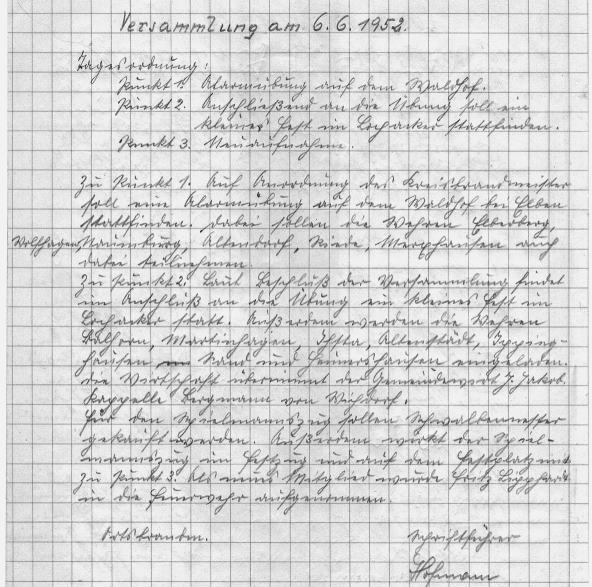 Versammlung am 6.6.1952.
Tagesordnung:
Punkt 1. Alarmübung auf dem Waldhof.
Punkt 2. Anschließend an die Übung soll ein
kleines Fest im Lochacker stattfinden.
Punkt 3. Neuaufnahme.
Zu Punkt 1. Auf Anordnung des Kreisbrandmeister
soll eine Alarmübung auf dem Waldhof bei Elben
stattfinden. Dabei sollen die Wehren Elberberg,
Wolfhagen, Naumburg, Altendorf, Riede, Merxhausen auch
dabei teilnehmen.
Zu Punkt 2. Laut Beschluß der Versammlung findet
im Anschluß an die Übung ein kleines Fest im
Lochacker statt. Außerdem werden die Wehren
Balhorn, Martinhagen, Ista, Altenstädt, Ipping-
hausen, Sand und Heimarshausen eingeladen.
Die Wirtschaft übernimmt der Gemeindewirt J. Jakob.
Kappelle Bergmann von
Für den Spielmannszug sollen Schwalbennester
gekauft werden. Außerdem wirkt der Spiel-
mannszug im Festzug und auf dem Festplatz mit.
Zu Punkt 3. Als neues Mitglied wurde Fritz Lipphardt
in die Feuerwehr aufgenommen.
Ortsbrandm. Schriftführer
Hofmann